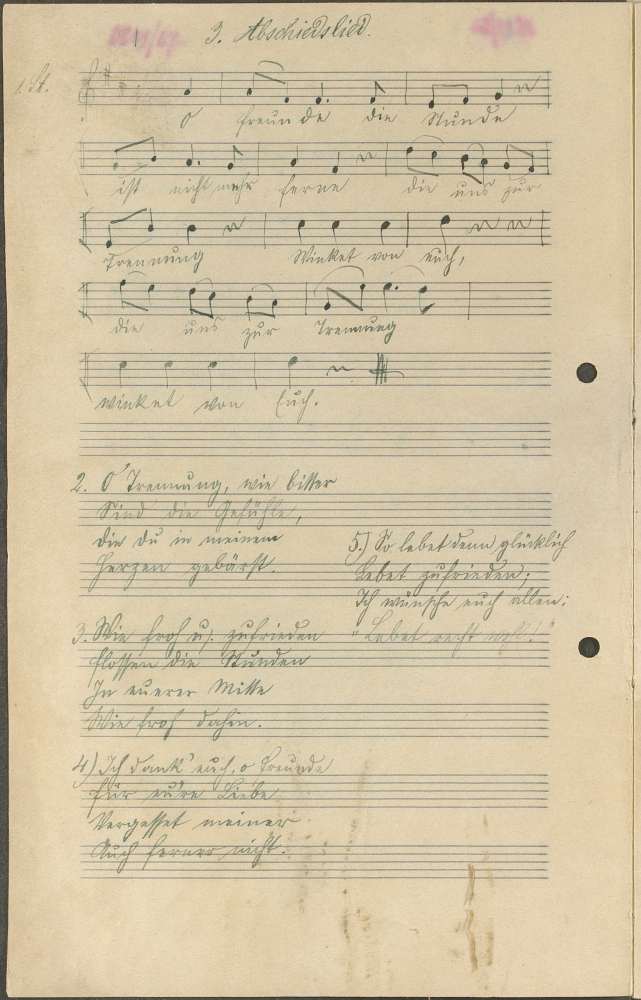 3. Abschiedslied.
1. St.
O Freunde die Stunde
ist nicht mehr ferne die uns zur
Trennung Winket von euch,
die uns zur Trennung
winket von Euch.
2. O Trennung, wie bitter
Sind die Gefühle,
die du in meinem
Herzen gebärst.
3. Wie froh u. zufrieden
flossen die Stunden
In eurer Mitte
Wie froh dahin.
4) Ich dank' euch, o Freunde
Für eure Liebe
Vergesset meiner
Auch ferner nicht.
5.) So lebet denn glücklich
Lebet zufrieden;
Ich wünsche euch allen:
"Lebet recht wohl!"